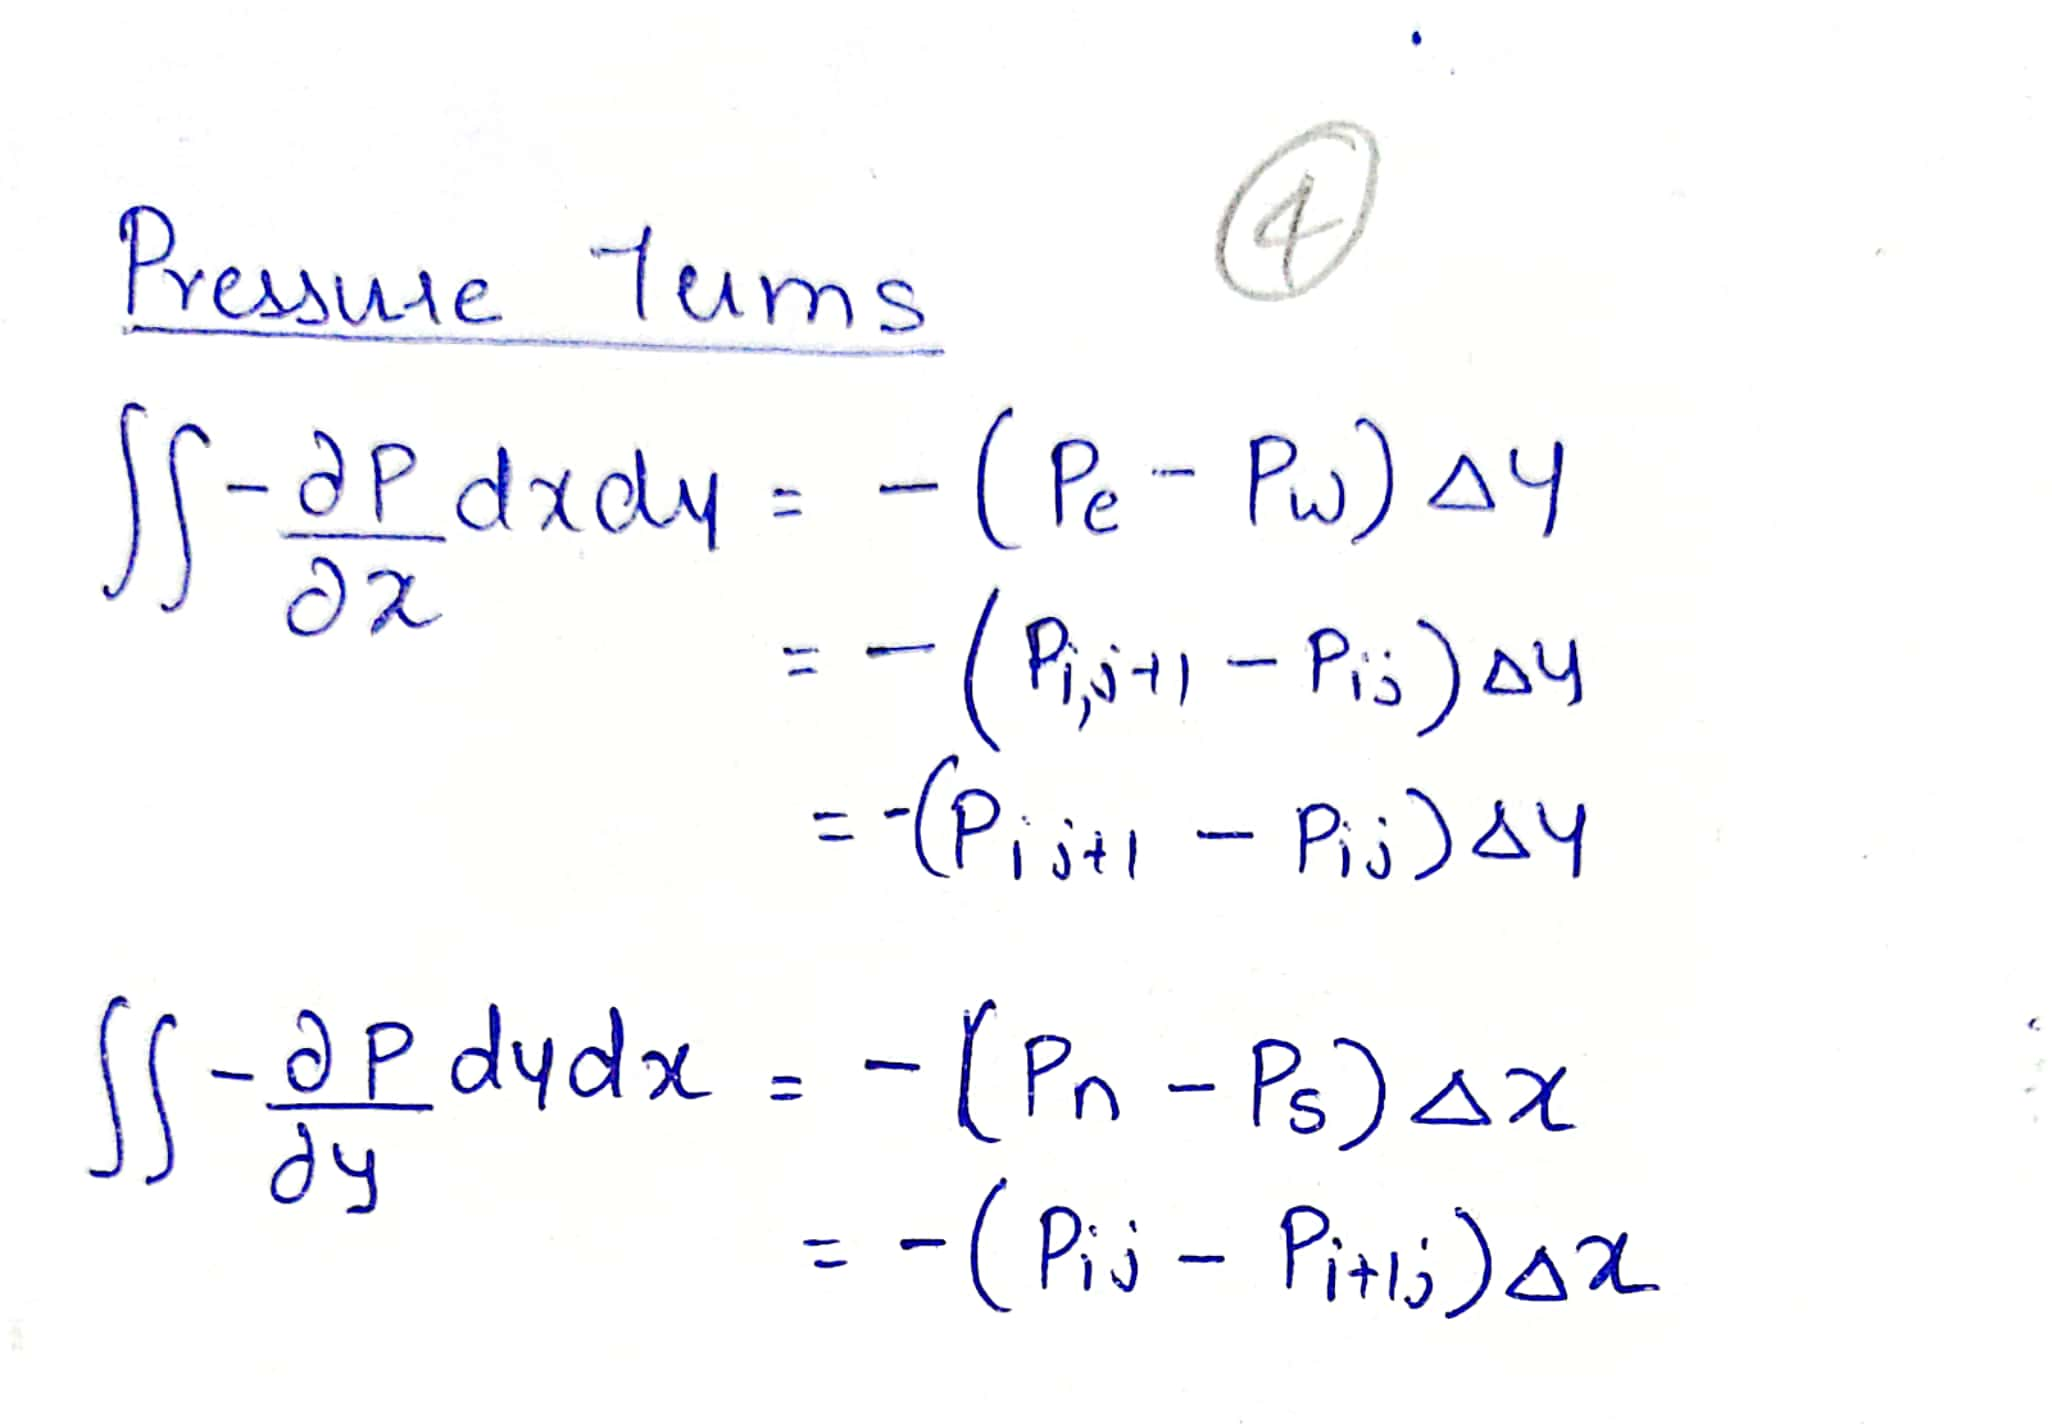 ④
Pressure Terms
∬ -∂P/∂x dxdy = -(Pe - Pw) Δy
= -(Pi,j+1 - Pij) Δy
= -(Pij+1 - Pij) Δy
∬ -∂P/∂y dydx = -(Pn - Ps) Δx
= -(Pij - Pi+1j) Δx